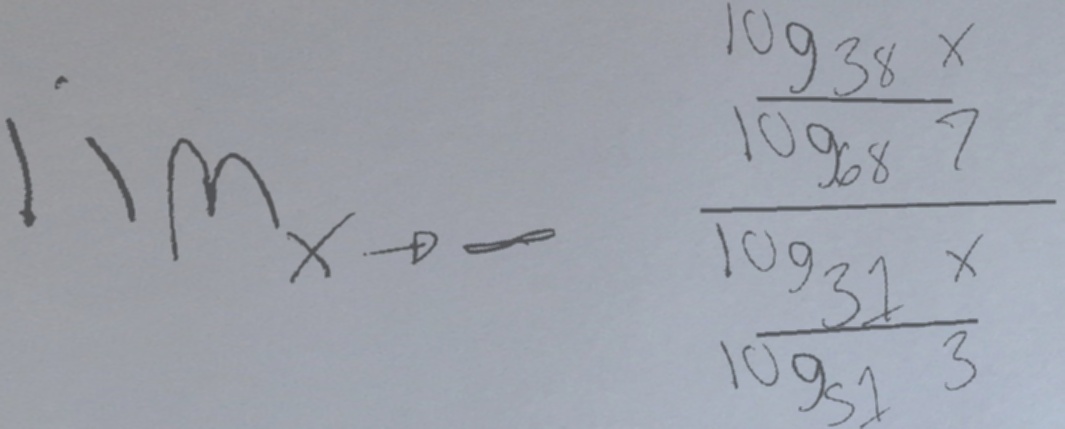 lim x → –
log 38 x
log 68 7
log 31 x
log 51 3